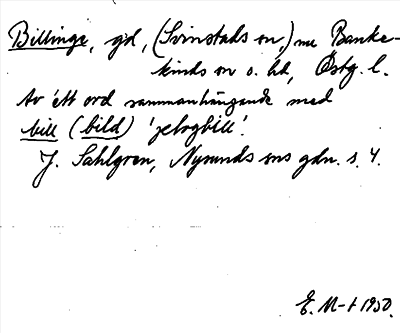 Billinge, gd, (Svinstads sn,) nu Banke-
kinds sn o. hd, Östg. l.
Av ett ord sammanhängande med
bill (bild) 'plogbill'.
J. Sahlgren, Nysunds sns gdn. s. 4.
E. M-t 1950.